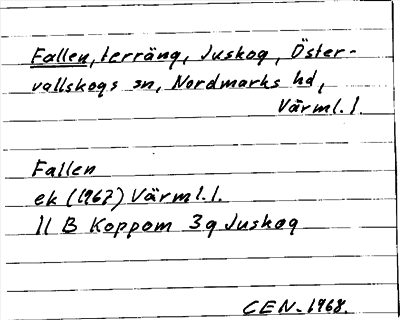 Fallen, terräng, Juskog, Öster-
vallskogs sn, Nordmarks hd,
Värml. l.
Fallen
ek (1967) Värml. l.
11 B Koppom 3g Juskog
CEN-1968.